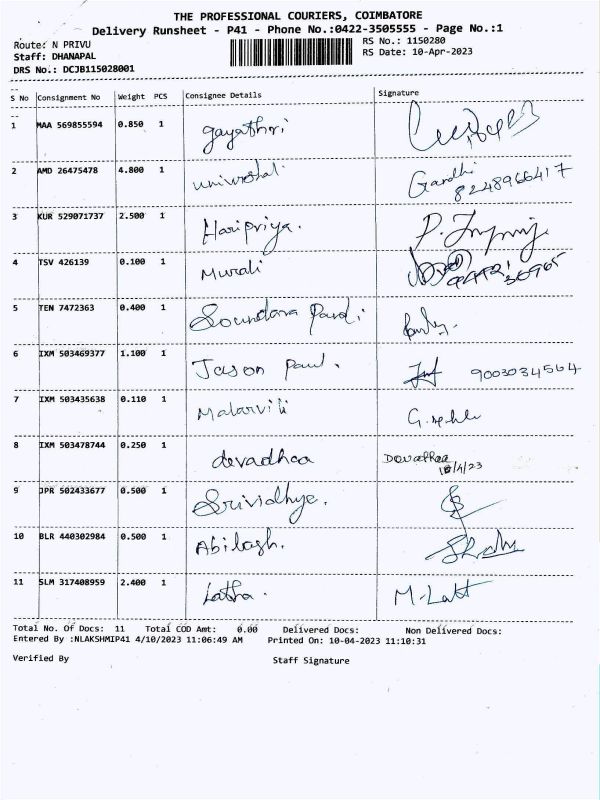 THE PROFESSIONAL COURIERS, COIMBATORE
Delivery Runsheet - P41 - Phone No.:0422-3505555 - Page No.:1
Route: N PRIVU RS No.: 1150280
Staff: DHANAPAL RS Date: 10-Apr-2023
DRS No.: DCJB115028001
S No Consignment No Weight PCS Consignee Details Signature
1 MAA 569855594 0.850 1 gayathri
2 AMD 26475478 4.800 1 universal Gandhi
8248966417
3 KUR 529071737 2.500 1 Haripriya.
4 TSV 426139 0.100 1 Murali
5 TEN 7472363 0.400 1 Soundara Pandi
6 IXM 503469377 1.100 1 Jason Paul. 9003034564
7 IXM 503435638 0.110 1 Malarvili
8 IXM 503478744 0.250 1 devadhaa
9 JPR 502433677 0.500 1 Srividhya.
10 BLR 440302984 0.500 1 Abilash.
11 SLM 317408959 2.400 1 Latha.
Total No. Of Docs: 11 Total COD Amt: 0.00 Delivered Docs: Non Delivered Docs:
Entered By :NLAKSHMIP41 4/10/2023 11:06:49 AM Printed On: 10-04-2023 11:10:31
Verified By Staff Signature